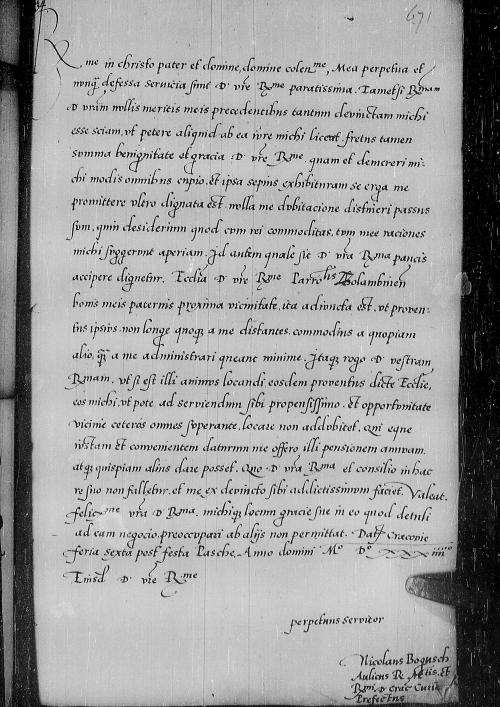 671
Rme in christo pater et domine, domine colenme, Mea perpetua et
nunq defessa seruicia sint D vre Rme paratissima. Tametsi Rmam
D vram nullis meritis meis precedentibus tantum devinctam michi
esse sciam, vt petere aliquid ab ea iure michi liceat, fretus tamen
summa benignitate et gracia D vre Rme, quam et demereri mi-
chi modis omnibus cupio, et ipsa sepius exhibituram se erga me
promittere vltro dignata est, nulla me dubitacione distineri passus
sum, quin desiderium quod cum rei commoditas, tum mee raciones
michi suggerunt aperiam. Id autem quale sit D vra Rma paucis
accipere dignetur. Ecclia D vre Rme Parrolis Wolambinen
bonis meis paternis proxima vicinitate, ita adiuncta est, vt proven-
tus ipsius non longe quoq a me distantes, commodius a quopiam
alio, q a me administrari queant minime. Itaq rogo D vestram
Rmam, vt si est illi animus locandi eosdem proventus dicte Ecclie,
eos michi, vt pote ad serviendum sibi propensissimo, et opportunitate
vicinie ceteros omnes superante, locare non addubitet, qui eque
iustam et convenientem daturum me offero illi pensionem annuam,
atq quispiam alius dare posset. Quo D vra Rma et consilio in hac
re suo non falletur, et me ex devincto sibi addictissimum faciet. Valeat
felicme vra D Rma, michiq locum gracie sue in eo quod detuli
ad eam negocio, preoccupari ab alijs non permittat. Dat Cracovie
feria sexta post festa Pasche, Anno domini Mo Do XXXiiiito
Eiusd D vre Rme
perpetuus servitor
Nicolaus Bogusch
Aulicus R Mtis et
Rmi D Crac Curie
Prefectus